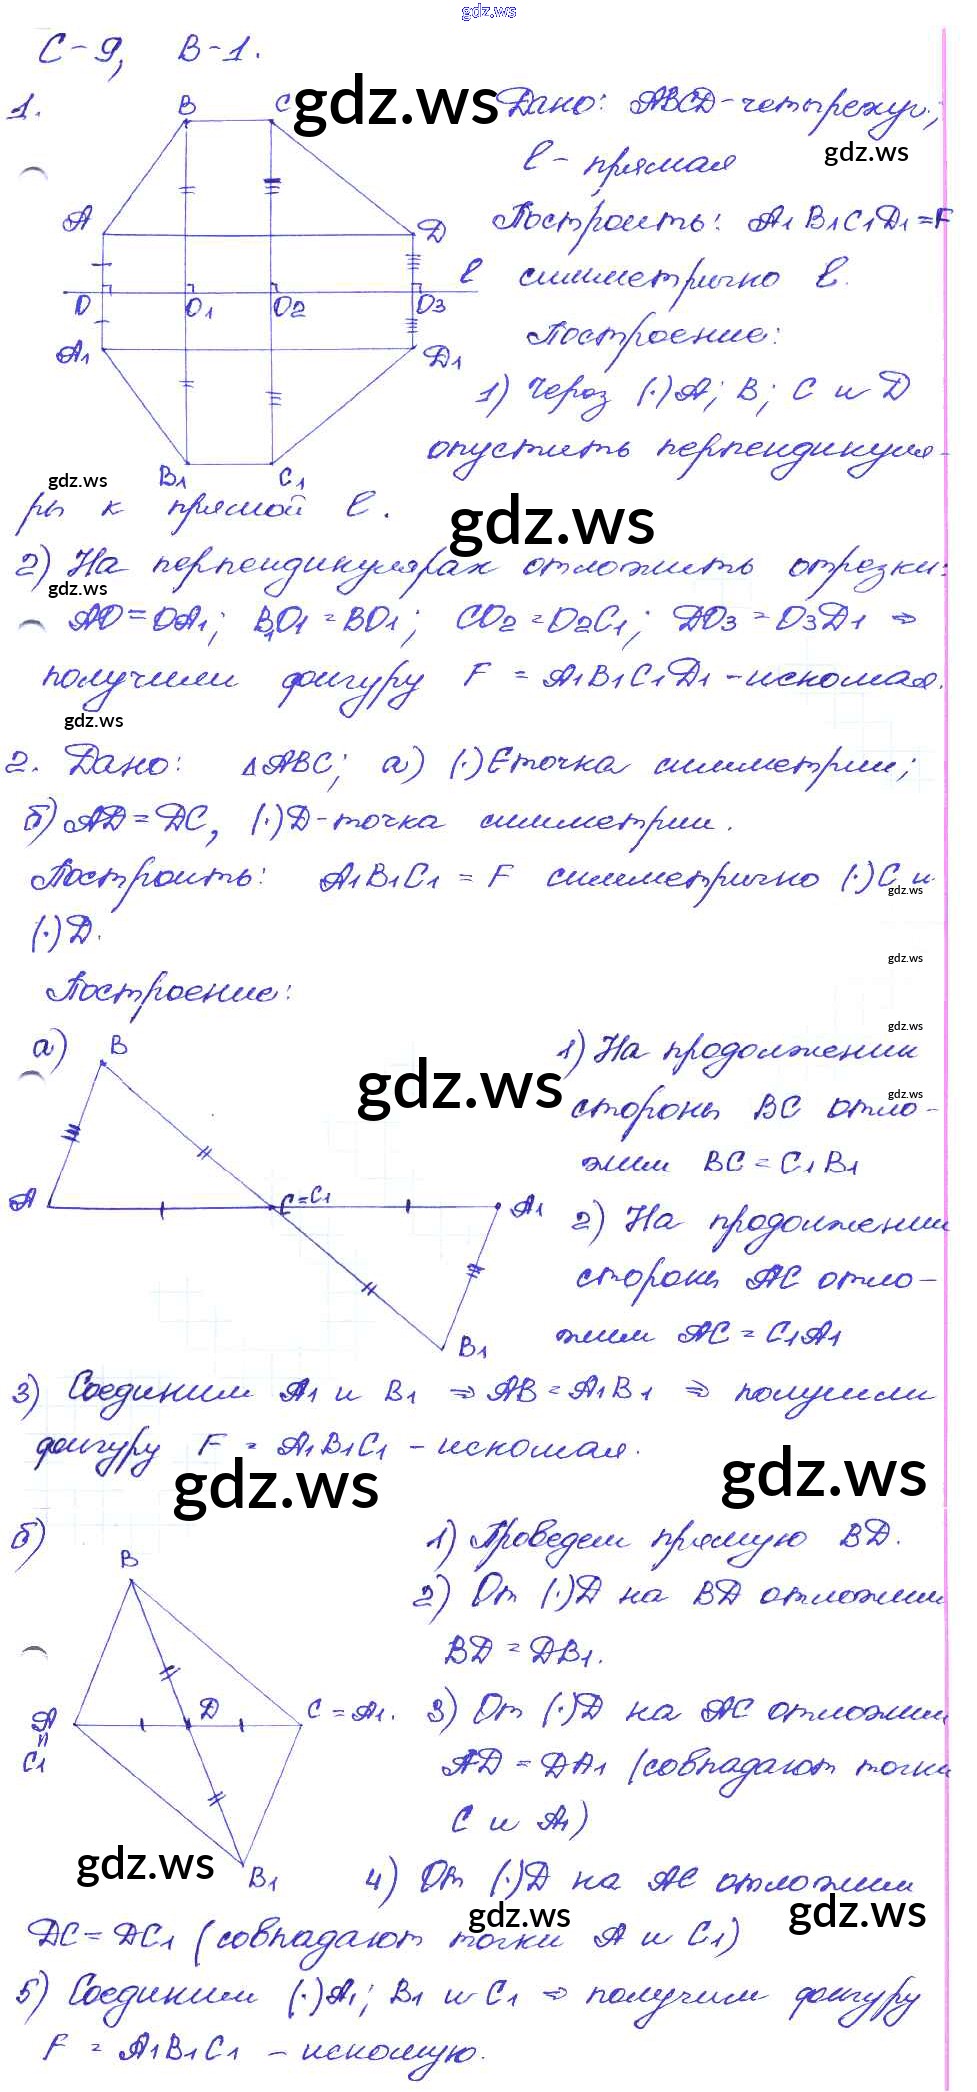 gdz.ws
С-9, В-1.
1.
B C
gdz.ws
Дано: ABCD-четырехуг.;
l - прямая
gdz.ws
A Д
Построить: A1B1C1Д1=F
симметрично l.
O O1 O2 O3 l
Построение:
A1 Д1
1) Через (·)A; B; C и D
опустить перпендикуля-
B1 C1
gdz.ws
ры к прямой l.
gdz.ws
2) На перпендикулярах отложить отрезки:
gdz.ws
AO=OA1; B1O1=BO1; CO2=O2C1; ДO3=O3Д1 ⇒
получили фигуру F = A1B1C1Д1 - искомая.
gdz.ws
2. Дано: ΔABC; а) (·)C точка симметрии;
б) AD=DC, (·)D-точка симметрии.
Построить: A1B1C1 = F симметрично (·)C и
gdz.ws
(·)D.
gdz.ws
Построение:
gdz.ws
а) B
1) На продолжении
gdz.ws
gdz.ws
стороны BC отло-
жим BC=C1B1
A C=C1 A1
2) На продолжении
стороны AC отло-
жим AC=C1A1
B1
3) Соединим A1 и B1 ⇒ AB=A1B1 ⇒ получили
фигуру F = A1B1C1 - искомая.
gdz.ws
gdz.ws
б)
B
1) Проведем прямую BD.
2) От (·)D на BD отложим
BD=DB1.
A Д C=A1.
C1
3) От (·)D на AC отложим
AD=DA1 (совпадают точки
C и A1)
B1
gdz.ws
4) От (·)D на AC отложим
gdz.ws
gdz.ws
DC=DC1 (совпадают точки A и C1)
5) Соединим (·)A1; B1 и C1 ⇒ получим фигуру
F = A1B1C1 - искомую.